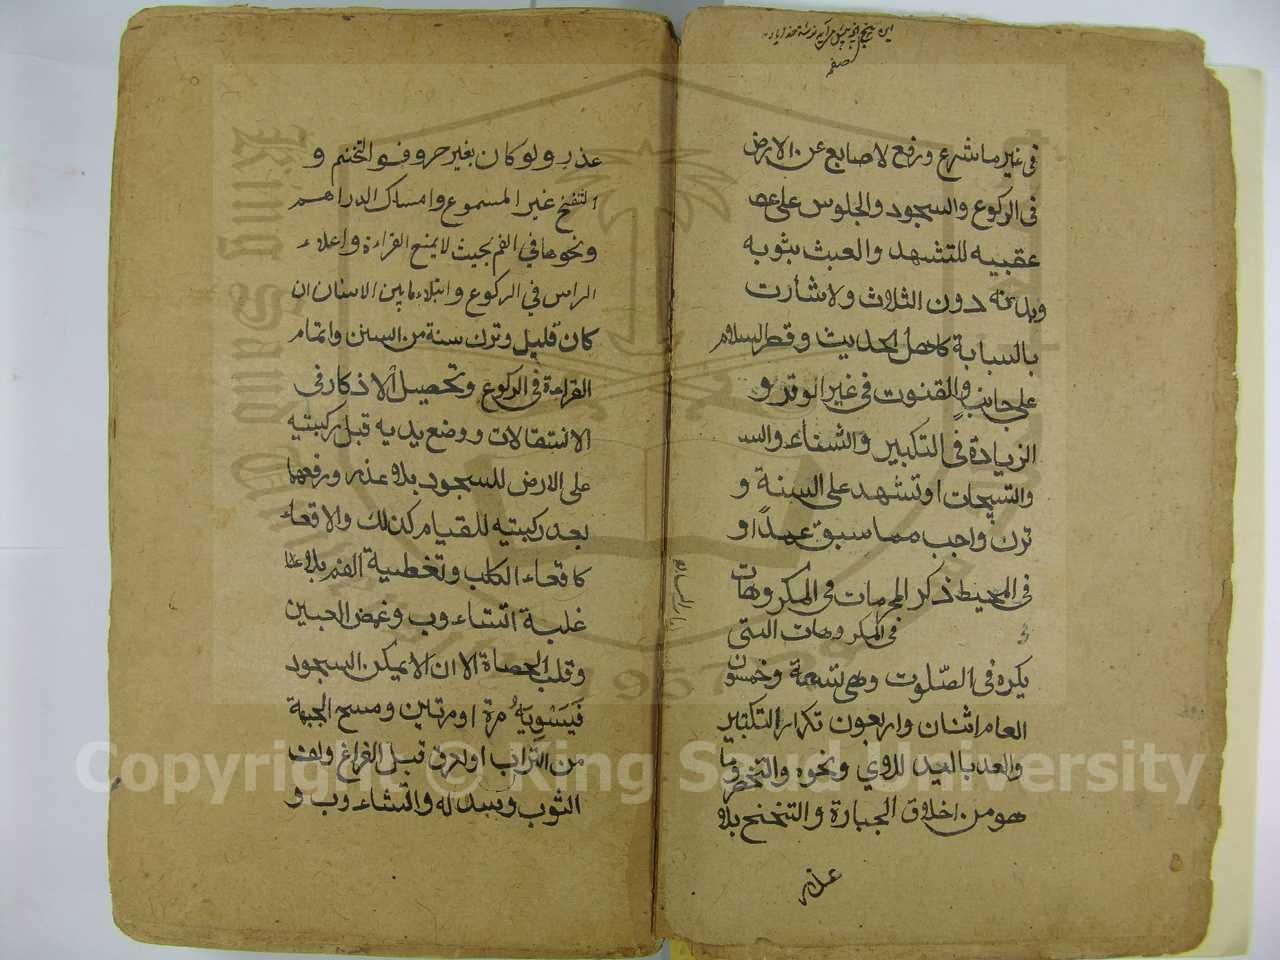 في غير ما شرع ورفع لاصابع عن الارض
في الركوع والسجود والجلوس على عص
عقبيه للتشهد والعبث بثوبه
وبدنه دون الثلاث ولاشارت
بالسبابة كاهل الحديث وقصر السلام
على جانب والقنوت في غير الوتر و
الزيادة في التكبير والثناء والتـ
والتسبيحات اوتشهد على السنة و
ترك واجب مما سبق عمدًا و
في المحيط ذكر المحرمات في المكروهات
في المكروهات التي
يكره في الصّلوت وهي تسعة وخمسون
العام اثنان واربعون تكرار التكبير
والعد باليد للاي ونحوه والتخصر وما
هو من اخلاق الجبارة والتنحنح بلا
عذر
عذر ولو كان بغير حروف والتخنم و
التنفخ غير المسموع وامساك الدراهم
ونحوها في الفم بحيث لا يمنع القراءة واعلاء
الراس في الركوع وابتلاء ما بين الاسنان ان
كان قليل وترك سنة من السنن واتمام
القراءة في الركوع وتحصيل الاذكار في
الانتقالات ووضع يديه قبل ركبتيه
على الارض للسجود بلا عذر ورفعهما
بعد ركبتيه للقيام كذلك والاقعاء
كاقعاء الكلب وتغطية الفم بلا
غلبة التثاءوب وغمض العينين
وقلب الحصاة الا ان لا يمكن السجود
فيسَوِيَهُ مرة او مرتين ومسح الجبهة
من التراب او العرق قبل الفراغ ولف
الثوب وسدله والتثاءوب و
Copyright © King Saud University
1957